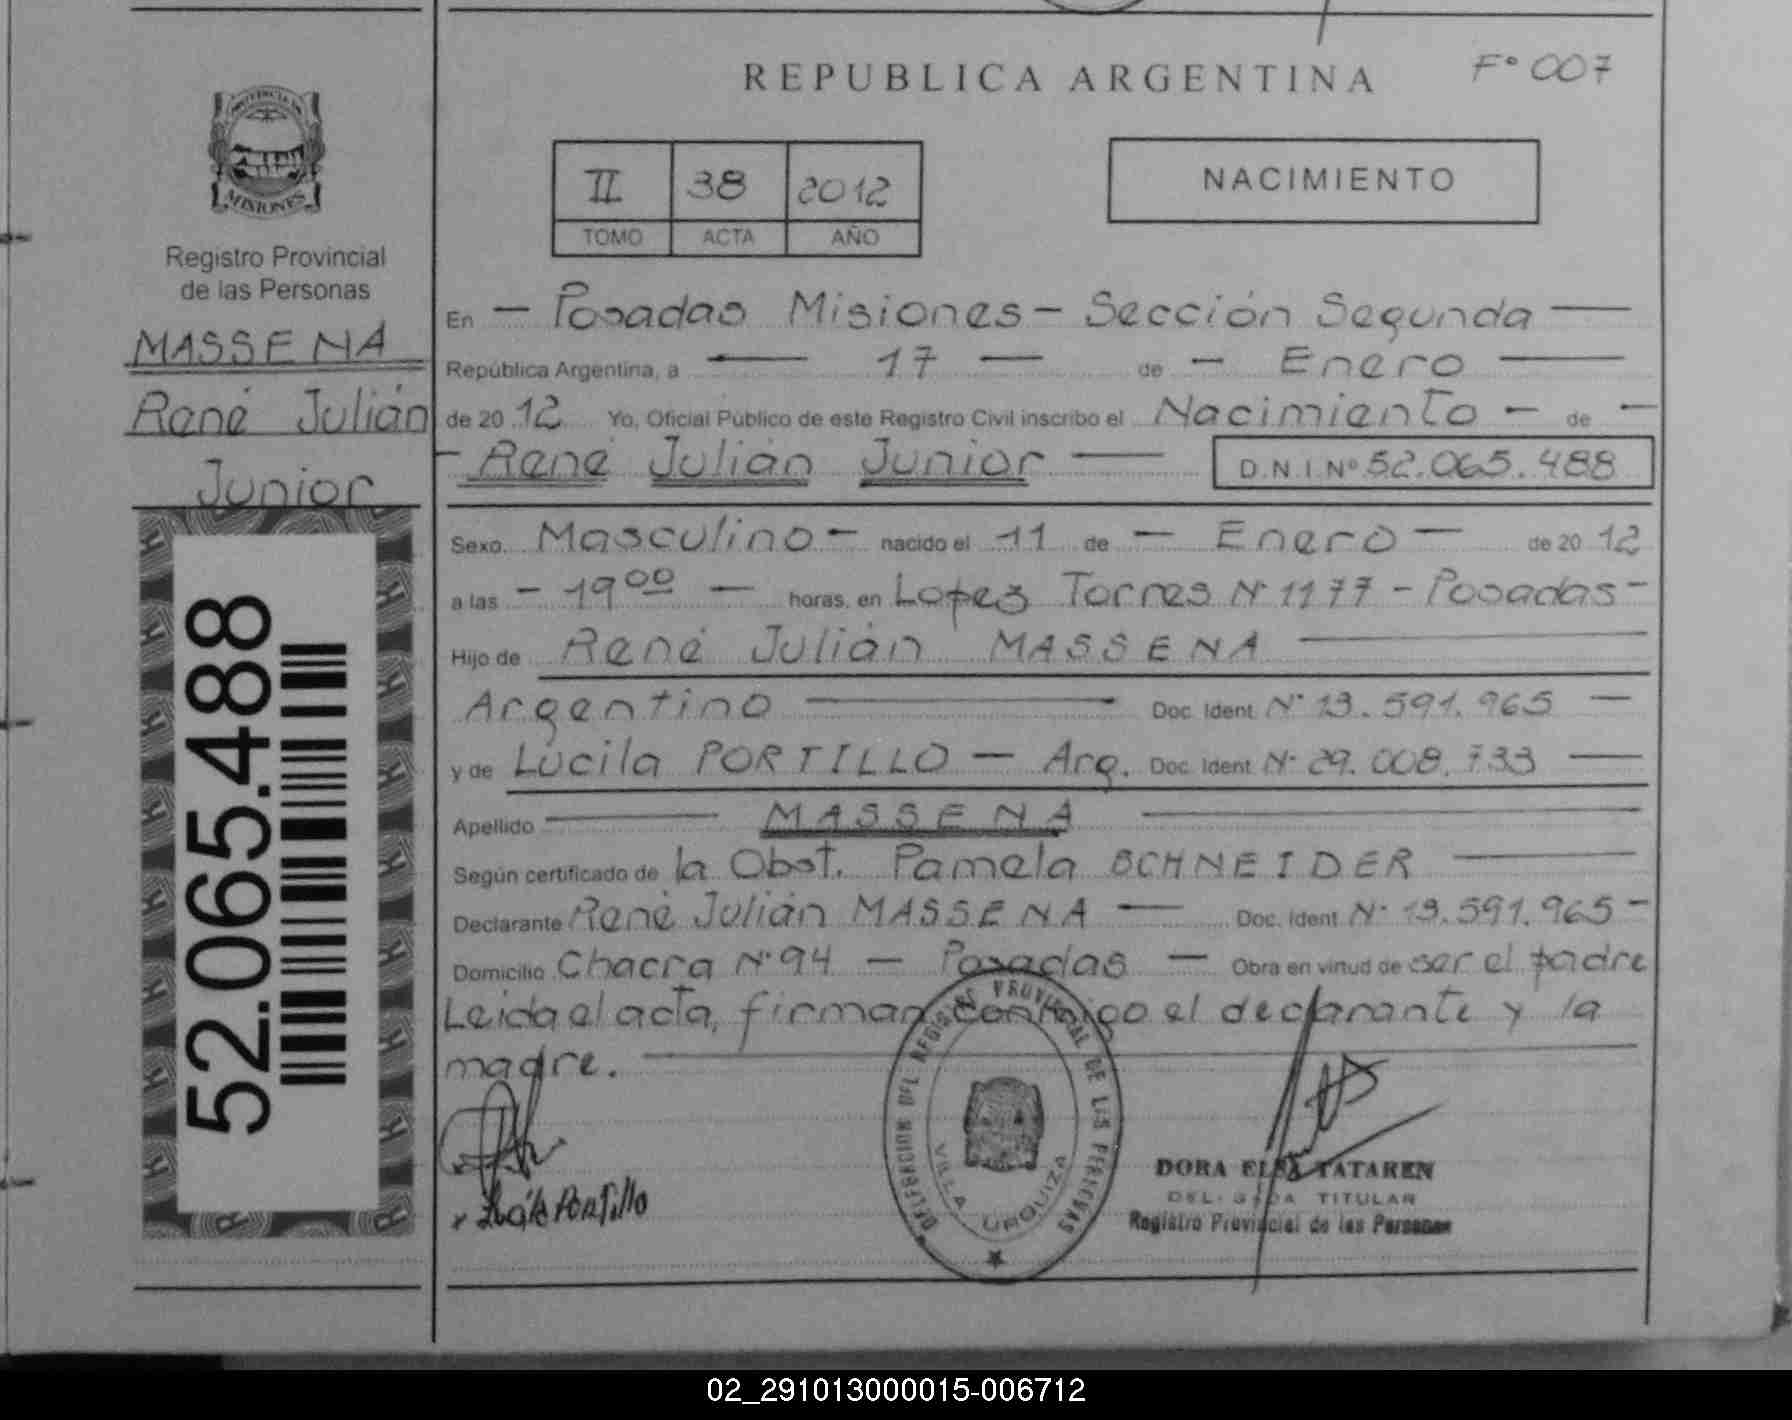 REPUBLICA ARGENTINA
Fº 007
PROVINCIA DE
MISIONES
Registro Provincial
de las Personas
MASSENA
René Julián
Junior
52.065.488
II 38 2012
TOMO ACTA AÑO
NACIMIENTO
En - Posadas Misiones - Sección Segunda -
República Argentina, a - 17 - de - Enero -
de 20 12 Yo, Oficial Público de este Registro Civil inscribo el Nacimiento - de -
- René Julián Junior - D.N.I. Nº 52.065.488
Sexo Masculino - nacido el 11 de - Enero - de 20 12
a las - 19 00 - horas, en Lopez Torres Nº 1177 - Posadas -
Hijo de René Julián MASSENA
Argentino - Doc. Ident. Nº 13.591.965 -
y de Lucila PORTILLO - Arg. Doc. Ident. Nº 29.008.733 -
Apellido - MASSENA -
Según certificado de la Obst. Pamela SCHNEIDER -
Declarante René Julián MASSENA - Doc. Ident. Nº 13.591.965 -
Domicilio Chacra Nº 94 - Posadas - Obra en virtud de ser el padre
Leída el acta, firman conmigo el declarante y la
madre.
DELEGACION DEL REGISTRO PROVINCIAL DE LAS PERSONAS
VILLA URQUIZA
PORTillo
DORA ELSA TATAREN
TITULAR
Registro Provincial de las Personas
02_291013000015-006712